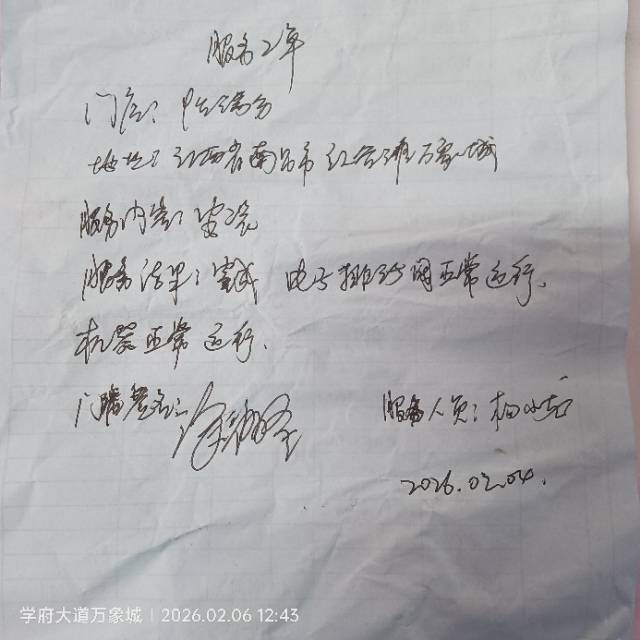 服务工单
门店：
地址：江西省南昌市红谷滩万象城
服务内容：安装
服务结果：完成 电子排 正常运行.
机器正常运行.
门店签名：
服务人员：杨
2026.02.04.
学府大道万象城 | 2026.02.06 12:43